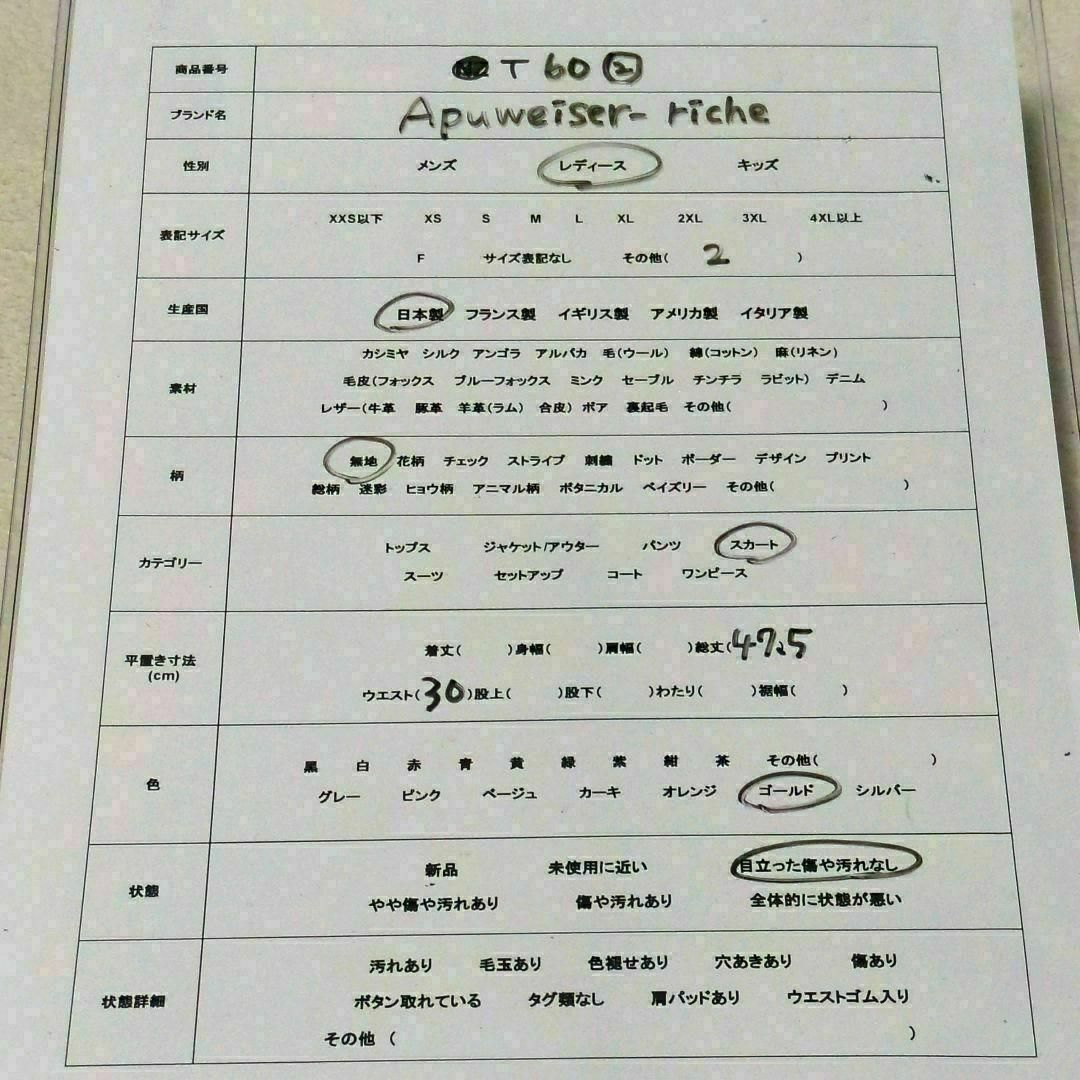 商品番号 T 60 ②
ブランド名 Apuweiser-riche
性別 メンズ レディース キッズ
表記サイズ XXS以下 XS S M L XL 2XL 3XL 4XL以上
F サイズ表記なし その他( 2 )
生産国 日本製 フランス製 イギリス製 アメリカ製 イタリア製
素材 カシミヤ シルク アンゴラ アルパカ 毛(ウール) 綿(コットン) 麻(リネン)
毛皮(フォックス ブルーフォックス ミンク セーブル チンチラ ラビット) デニム
レザー(牛革 豚革 羊革(ラム) 合皮) ボア 裏起毛 その他( )
柄 無地 花柄 チェック ストライプ 刺繍 ドット ボーダー デザイン プリント
総柄 迷彩 ヒョウ柄 アニマル柄 ボタニカル ペイズリー その他( )
カテゴリー トップス ジャケット/アウター パンツ スカート
スーツ セットアップ コート ワンピース
平置き寸法 (cm) 着丈( )身幅( )肩幅( )総丈(47.5
ウエスト(30)股上( )股下( )わたり( )裾幅( )
色 黒 白 赤 青 黄 緑 紫 紺 茶 その他( )
グレー ピンク ベージュ カーキ オレンジ ゴールド シルバー
状態 新品 未使用に近い 目立った傷や汚れなし
やや傷や汚れあり 傷や汚れあり 全体的に状態が悪い
状態詳細 汚れあり 毛玉あり 色褪せあり 穴あきあり 傷あり
ボタン取れている タグ類なし 肩パッドあり ウエストゴム入り
その他 ( )